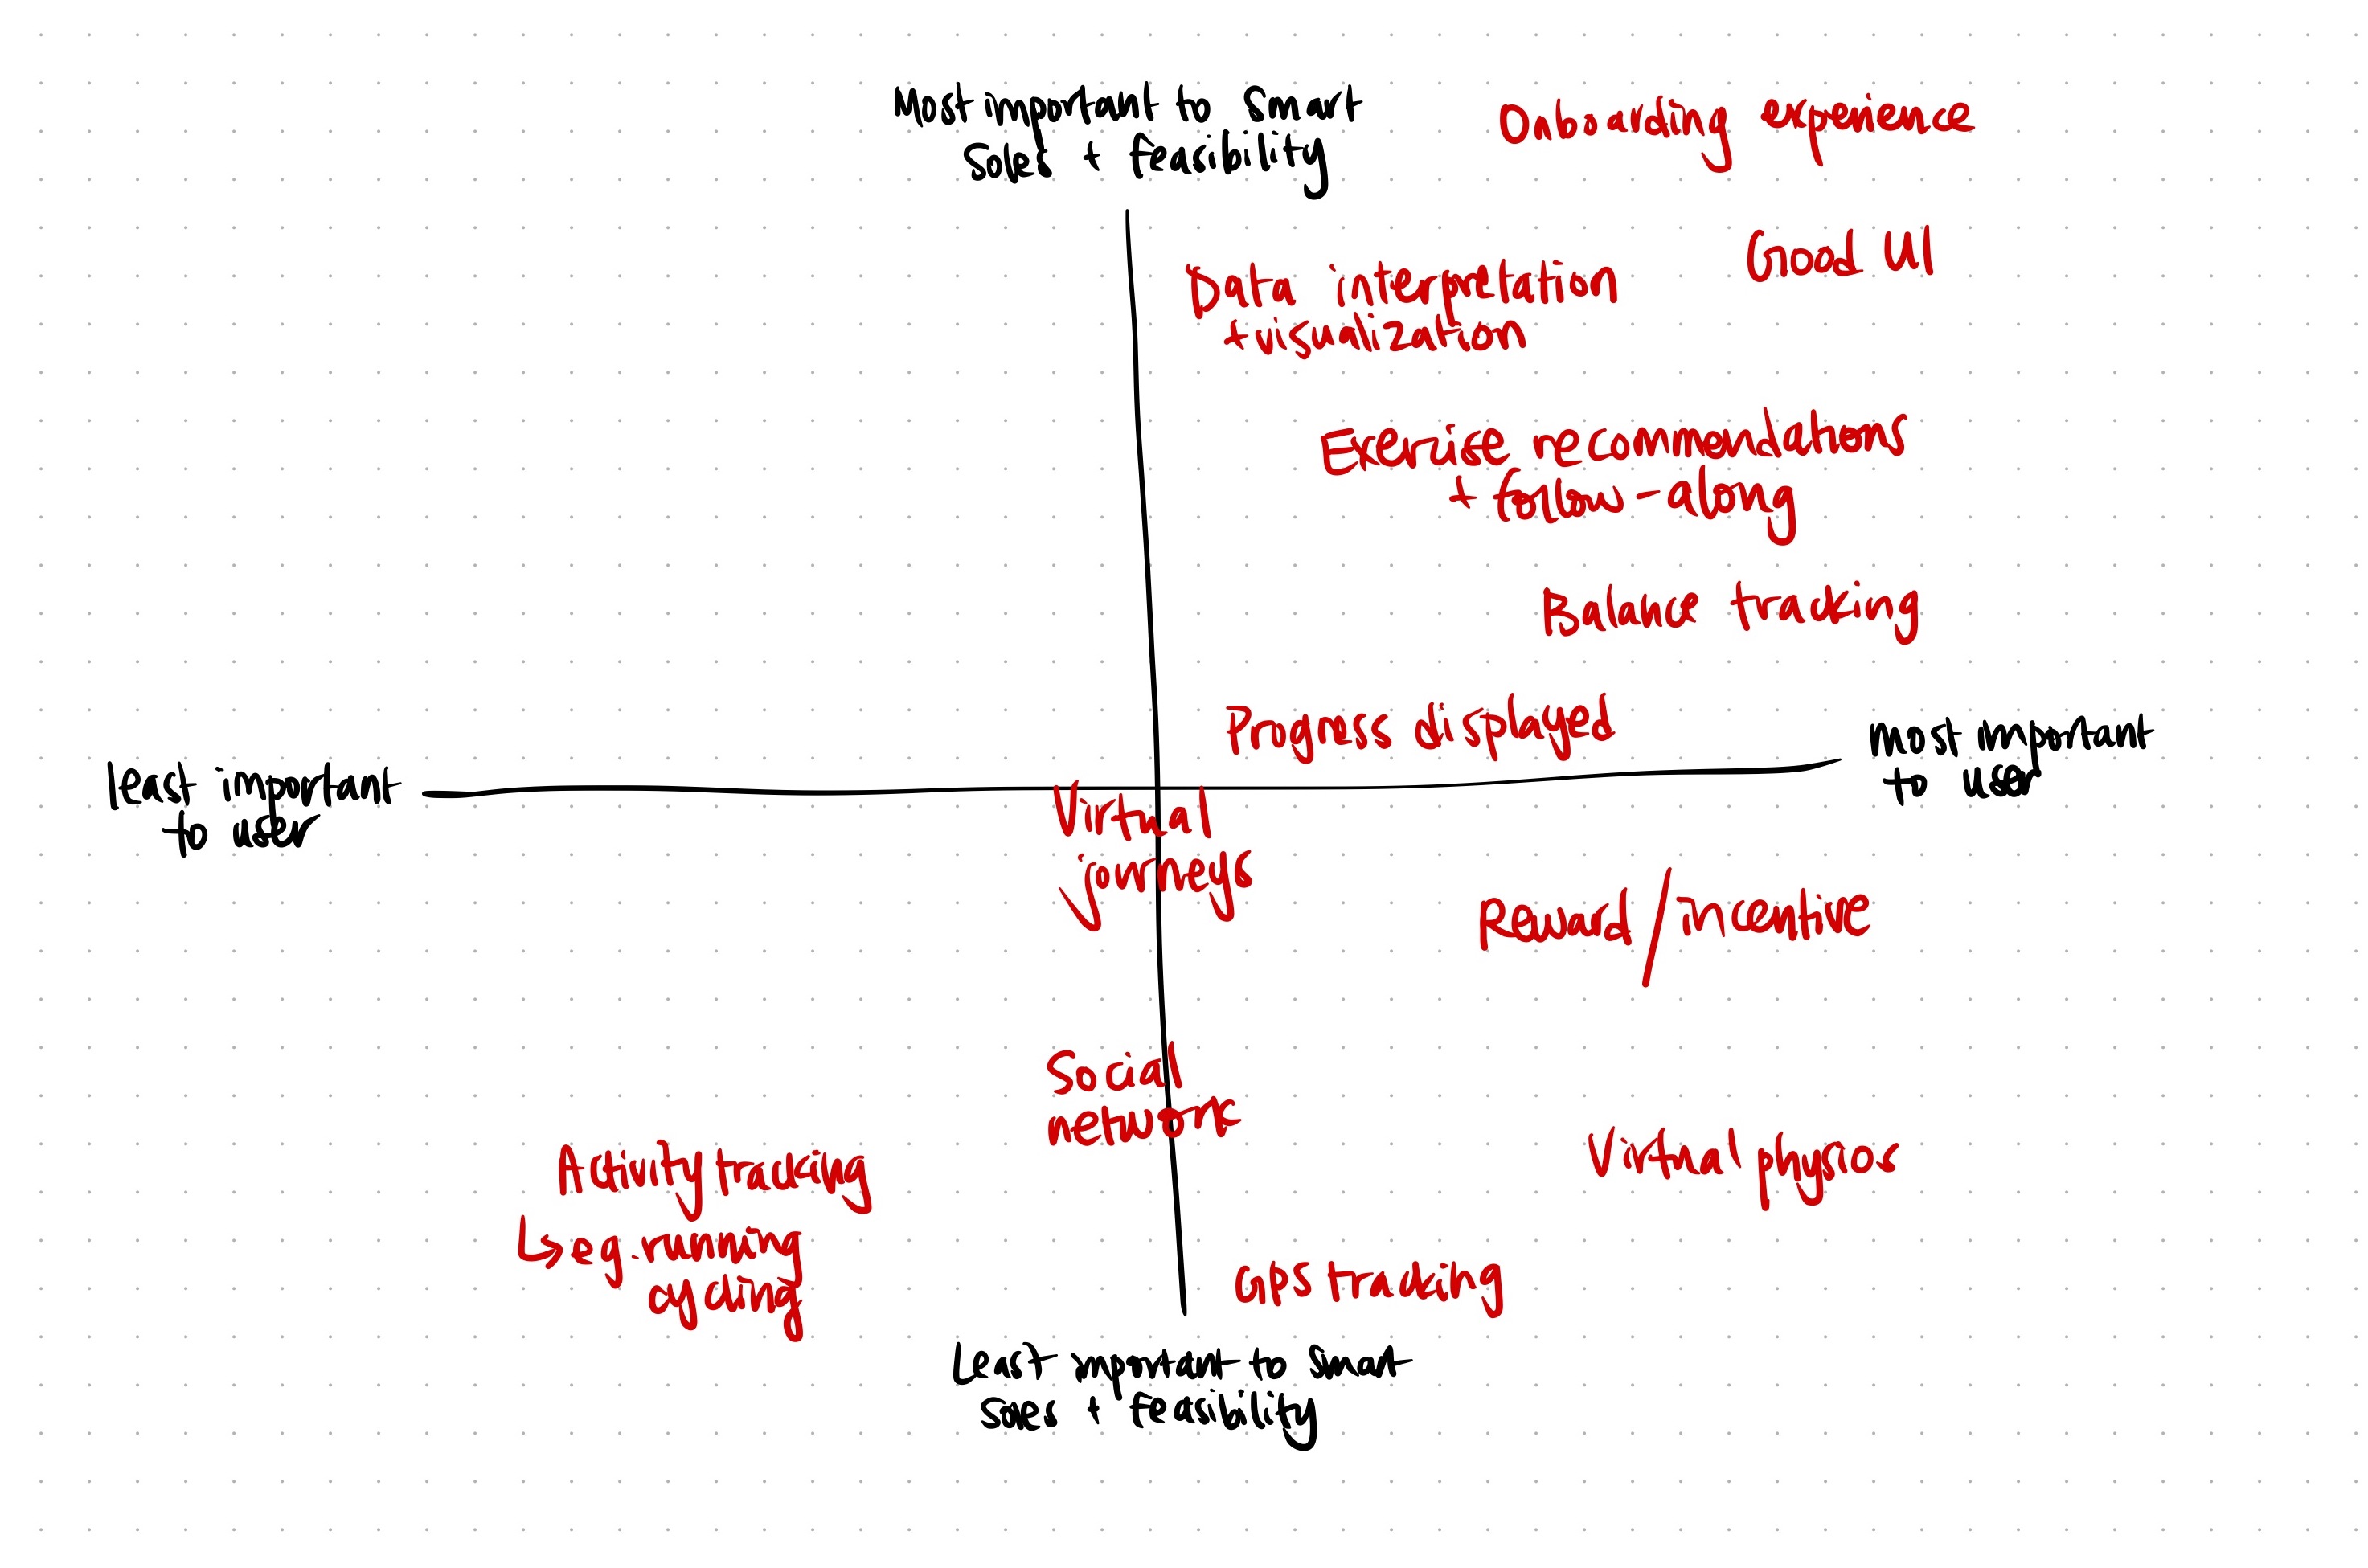 Most important to Smart
Soles + feasibility
Onboarding experience
Good UI
Data interpretation
+ visualization
Exercise recommendations
+ follow-along
Balance tracking
Progress displayed
Most important
to user
Least important
to user
Virtual
journeys
Reward/incentive
Social
network
Activity tracking
↳ eg. running
cycling
Virtual physios
GPS tracking
Least important to Smart
Soles + feasibility